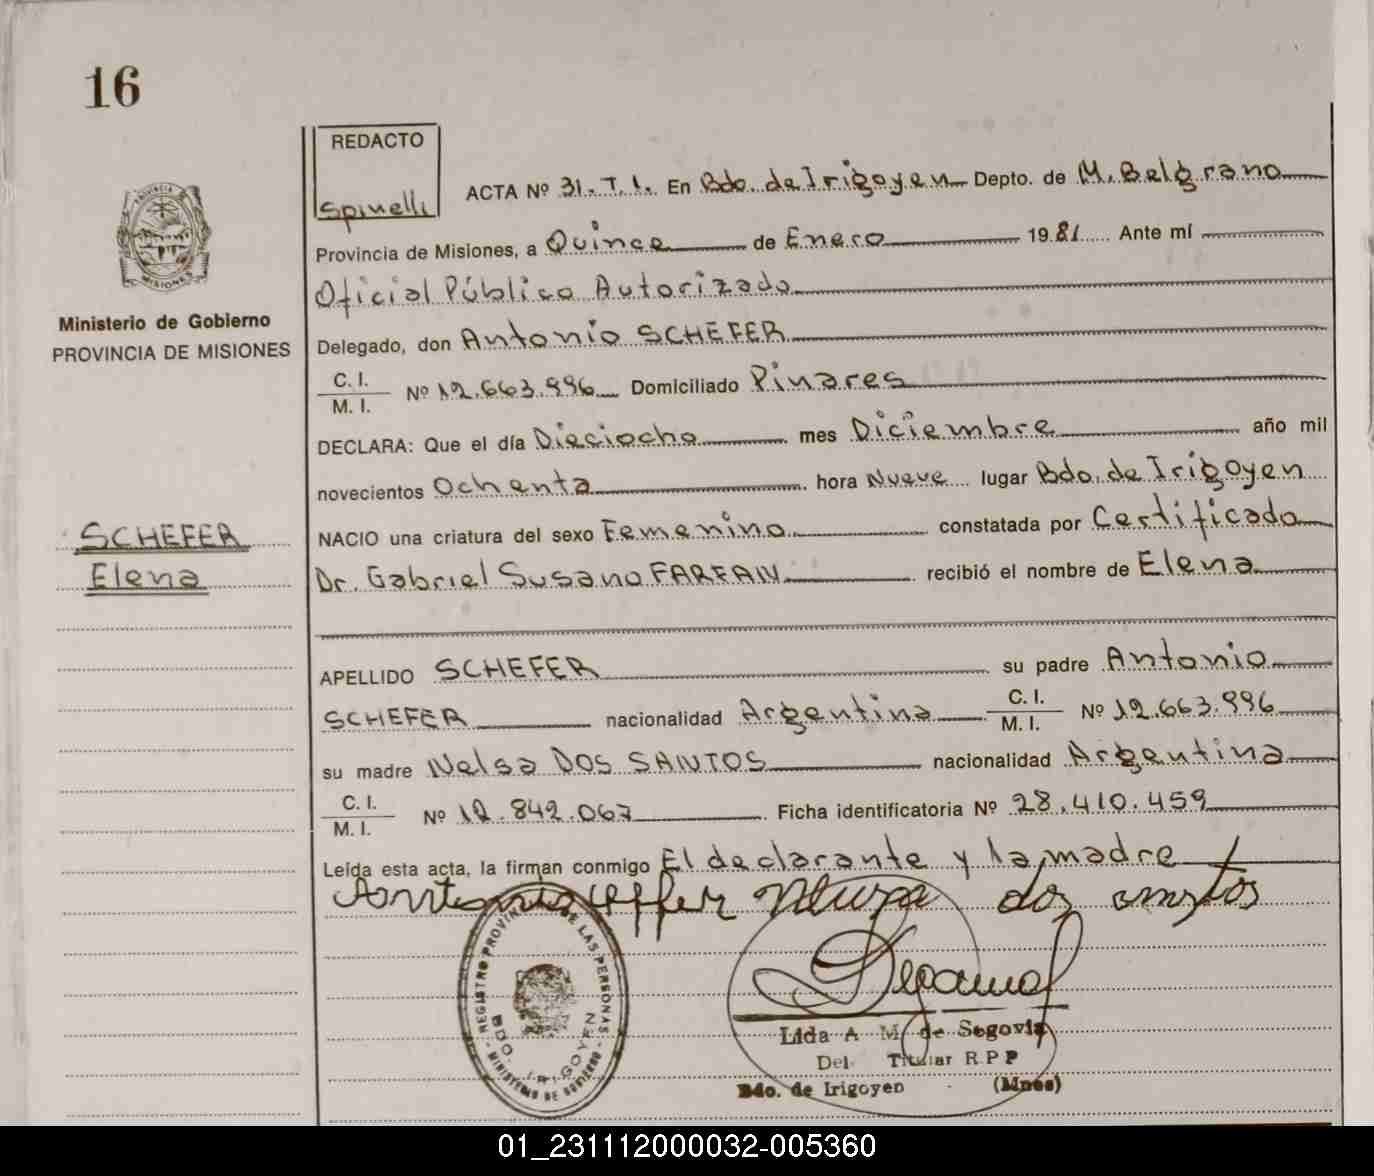 16
REDACTO
Spinelli
PROVINCIA
MISIONES
Ministerio de Gobierno
PROVINCIA DE MISIONES
SCHEFER
Elena
ACTA Nº 31. T. 1. En Bdo. de Irigoyen Depto. de M. Belgrano
Provincia de Misiones, a Quince de Enero 19 81 Ante mí
Oficial Público Autorizado
Delegado, don Antonio SCHEFER
C. I.
M. I. Nº 12.663.996 Domiciliado Pinares
DECLARA: Que el día Dieciocho mes Diciembre año mil
novecientos Ochenta hora Nueve lugar Bdo. de Irigoyen
NACIO una criatura del sexo Femenino constatada por Certificado
Dr. Gabriel Susano FARFAN recibió el nombre de Elena
APELLIDO SCHEFER su padre Antonio
SCHEFER nacionalidad Argentina C. I. M. I. Nº 12.663.996
su madre Nelsa DOS SANTOS nacionalidad Argentina
C. I.
M. I. Nº 12.842.067 Ficha identificatoria Nº 28.410.459
Leída esta acta, la firman conmigo El declarante y la madre
REGISTRO PROVINCIAL DE LAS PERSONAS
BDO. IRIGOYEN
MINISTERIO DE GOBIERNO
Lida A M de Segovia
Del. Titular R P P
Bdo. de Irigoyen (Mnes)
01_231112000032-005360